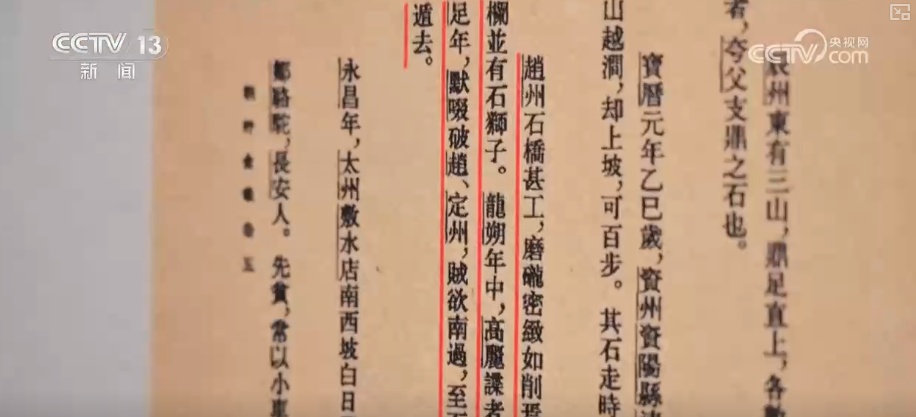 CCTV 13
新闻
CCTV 央视网
com
者，夸父支鼎之石也。
辰州東有三山，鼎足直上，各數
寶曆元年乙巳歲，資州資陽縣
山越澗，却上坡，可百步。其石走時
趙州石橋甚工，磨礲密緻如削焉
欄並有石獅子。龍朔年中，高麗諜者
足年，默啜破趙、定州，賊欲南過，至
遁去。
永昌年，太州敷水店南西坡白日
鄒駱駝，長安人。先貧，常以小車
朝野僉載卷五